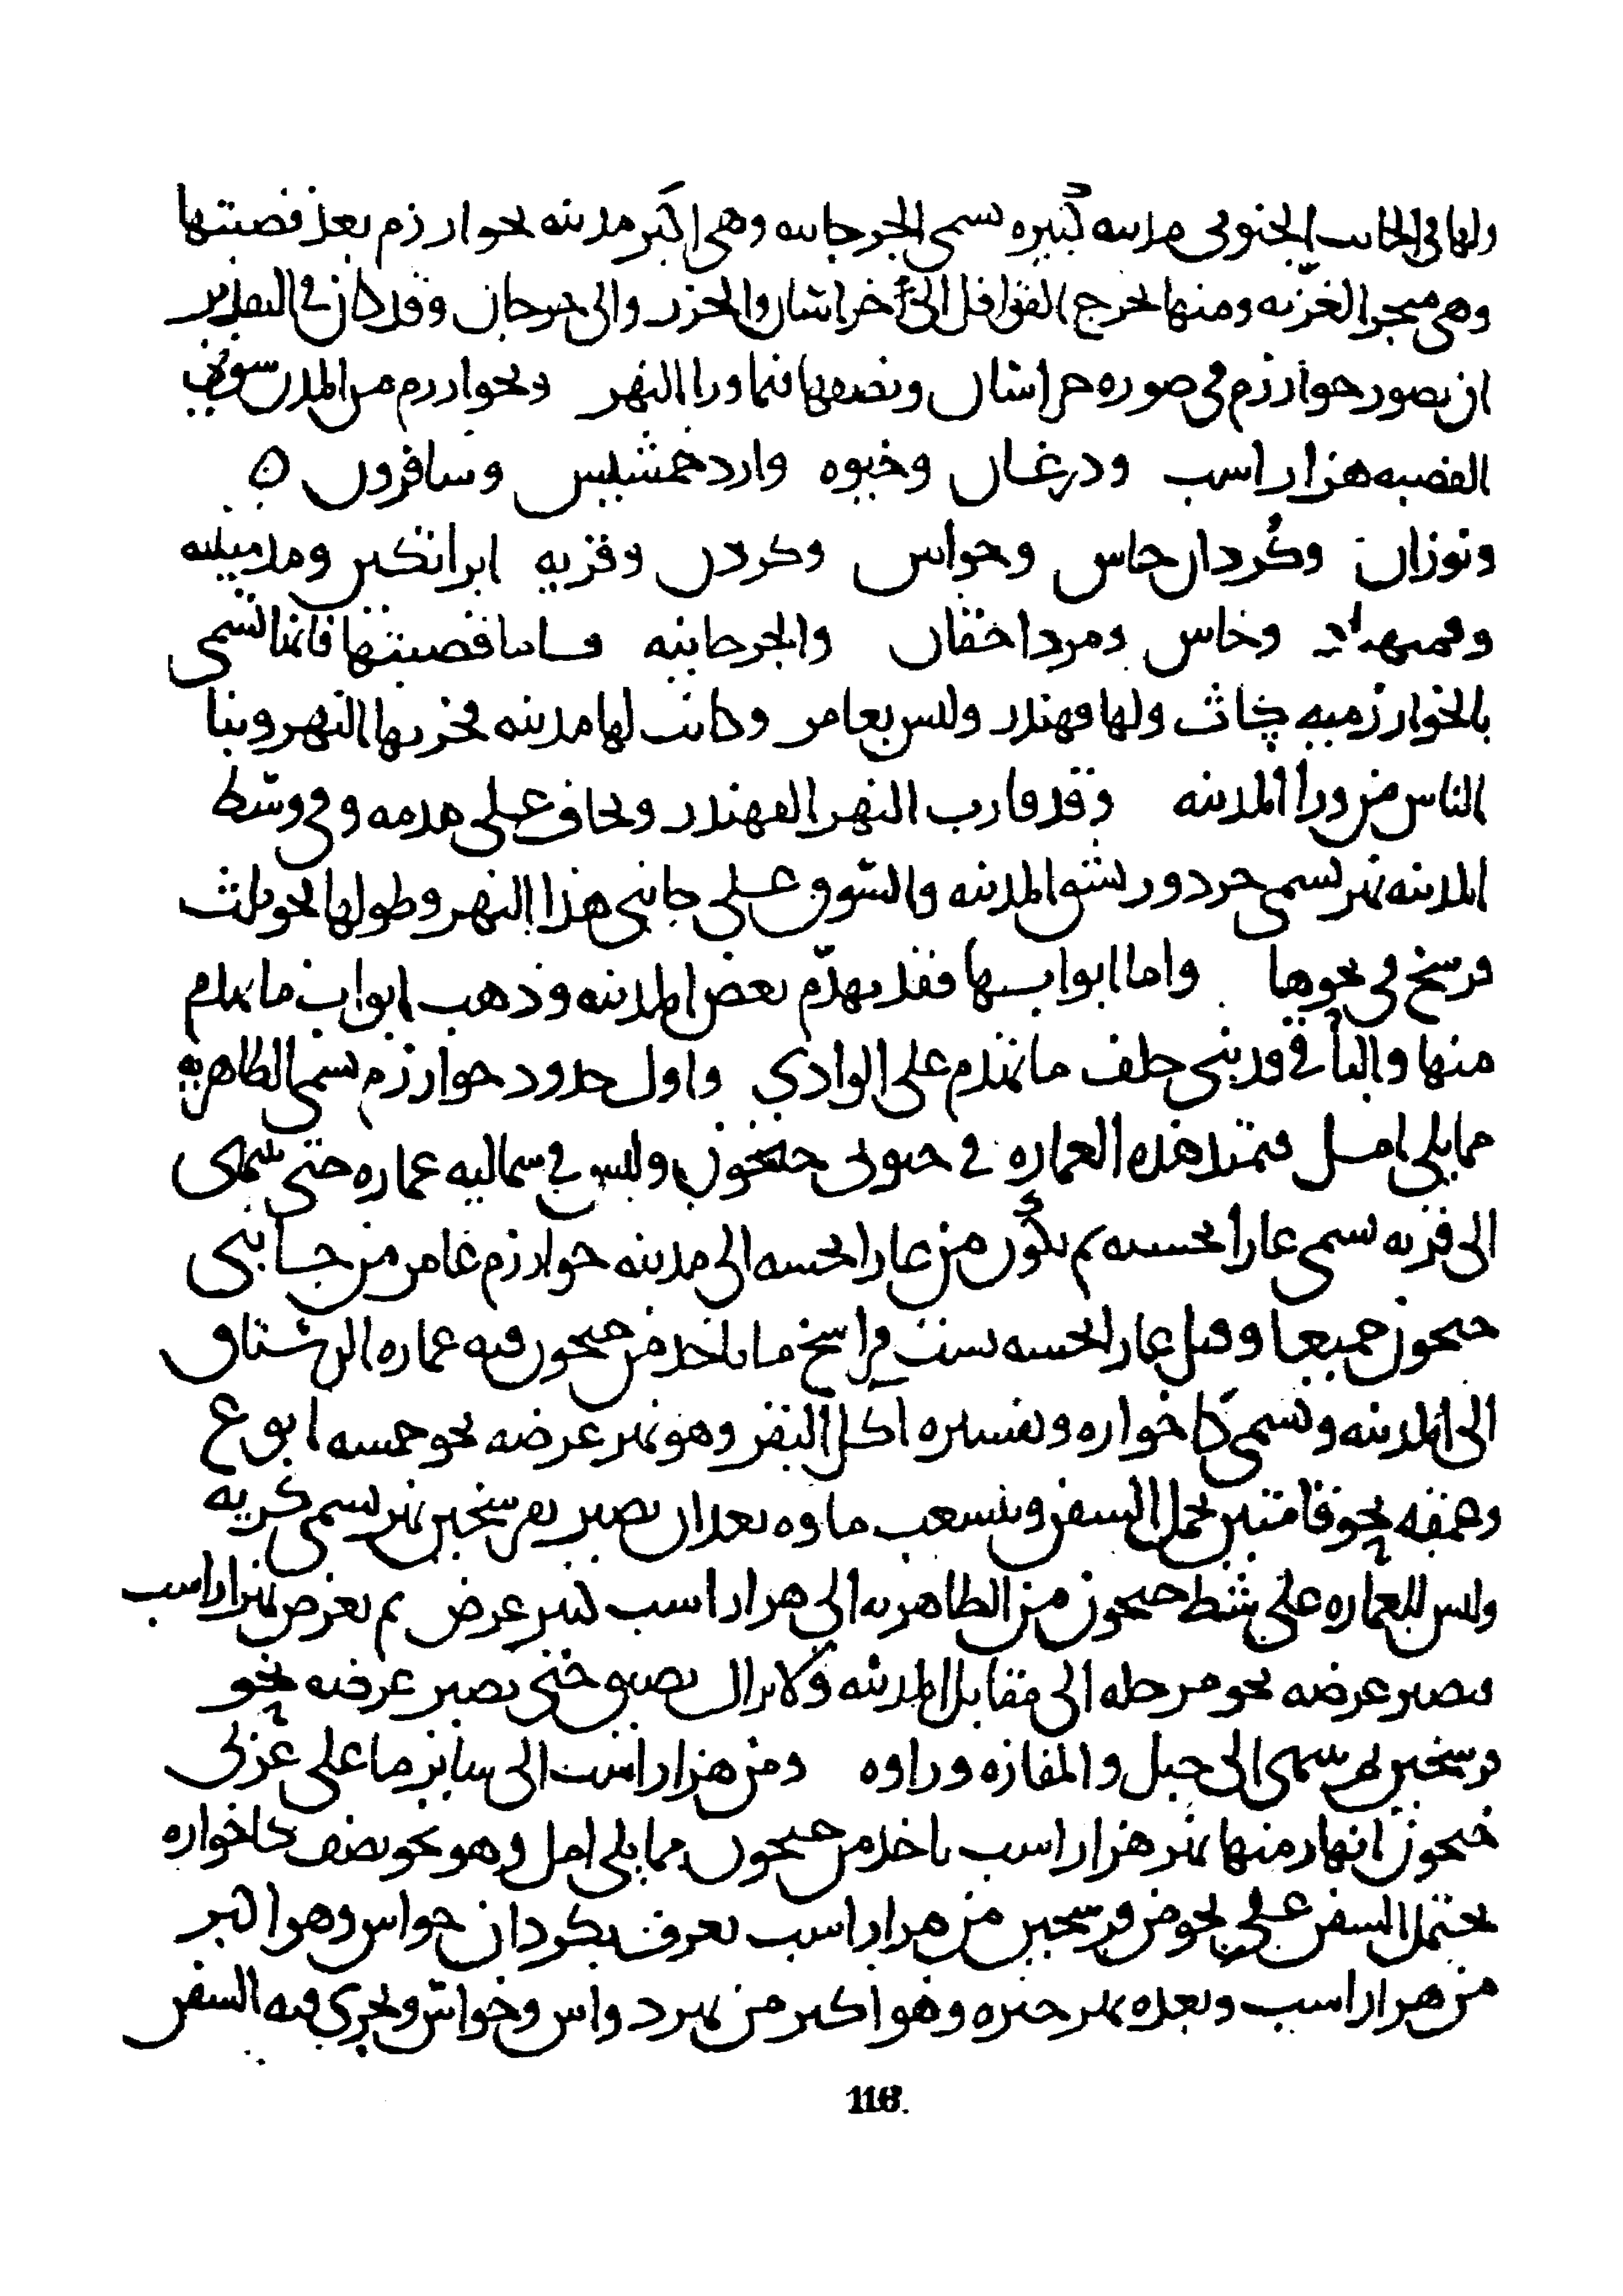 ولها فى الجانب الجنوبى مدينه كبيره تسمى الجرجانيه وهى اكبر مدينه بخوارزم بعد قصبتها
وهى متجر الغزيه ومنها تخرج القوافل الى خراسان والخزر والى جرجان وقد كان فى التقدير
ان يصور خوارزم فى صوره خراسان ونصفها فيما ورا النهر وبخوارزم من المدن سوى
القصبه هزاراسب ودرغان وخيوه واردخشميثن وسافردن
ونوزان وكردان خاس وخواس وكردر وقريه ابراتكين ومدمينيه
وخاس ومرداخقان والجرجانيه فاما قصبتها فانها تسمى
بالخوارزميه كاث ولها قهندز وليس بعامر وكانت لها مدينه فخربها النهر وبنا
الناس من ورا المدينه وقد قارب النهر القهندز ويخاف على هدمه وفى وسط
المدينه نهر يسمى جردور يشق المدينه والسوق على جانبى هذا النهر وطولها نحو ثلث
فرسخ فى نحوها واما ابوابها فقد تهدم بعض المدينه وذهب ابواب ما تهدم
منها والباقى قد بنى خلف ما تهدم على الوادي واول حدود خوارزم يسمى الطاهريه
مما يلى امل فتمتد هذه العماره فى جنوبى جيحون وليس فى شماليه عماره حتى ينتهى
الى قريه تسمى غارابخشنه ثم يكون من غارابخشنه الى مدينه خوارزم عامر من جانبى
جيحون جميعا وقبل غارابخشنه بست فراسخ ما ياخذ من جيحون فيه عماره الرستاق
الى المدينه ويسمى كاخواره وتفسيره اكل البقر وهو نهر عرضه نحو خمسه ابوع
وعمقه نحو قامتين يحمل السفن ويتشعب ماوه بعد ان يصير بفرسخين نهر يسمى كريه
وليس للعماره على شط جيحون من الطاهريه الى هزاراسب كثير عرض ثم يعرض بهزاراسب
فيصير عرضه نحو مرحله الى مقابل المدينه ولا يزال يضيق حتى يصير عرضه نحو
فرسخين ثم ينتهى الى جبل والمفازه وراوه ومن هزاراسب الى ساير ما على غربى
جيحون انهار منها نهر هزاراسب ياخذ من جيحون مما يلى امل وهو نحو نصف كاخواره
يحتمل السفن على نحو من فرسخين من هزاراسب يعرف بكردان خواس وهو اكبر
من هزاراسب وبعده نهر خيره وهو اكبر من نهر كردان خواس ويجرى فيه السفن
116.